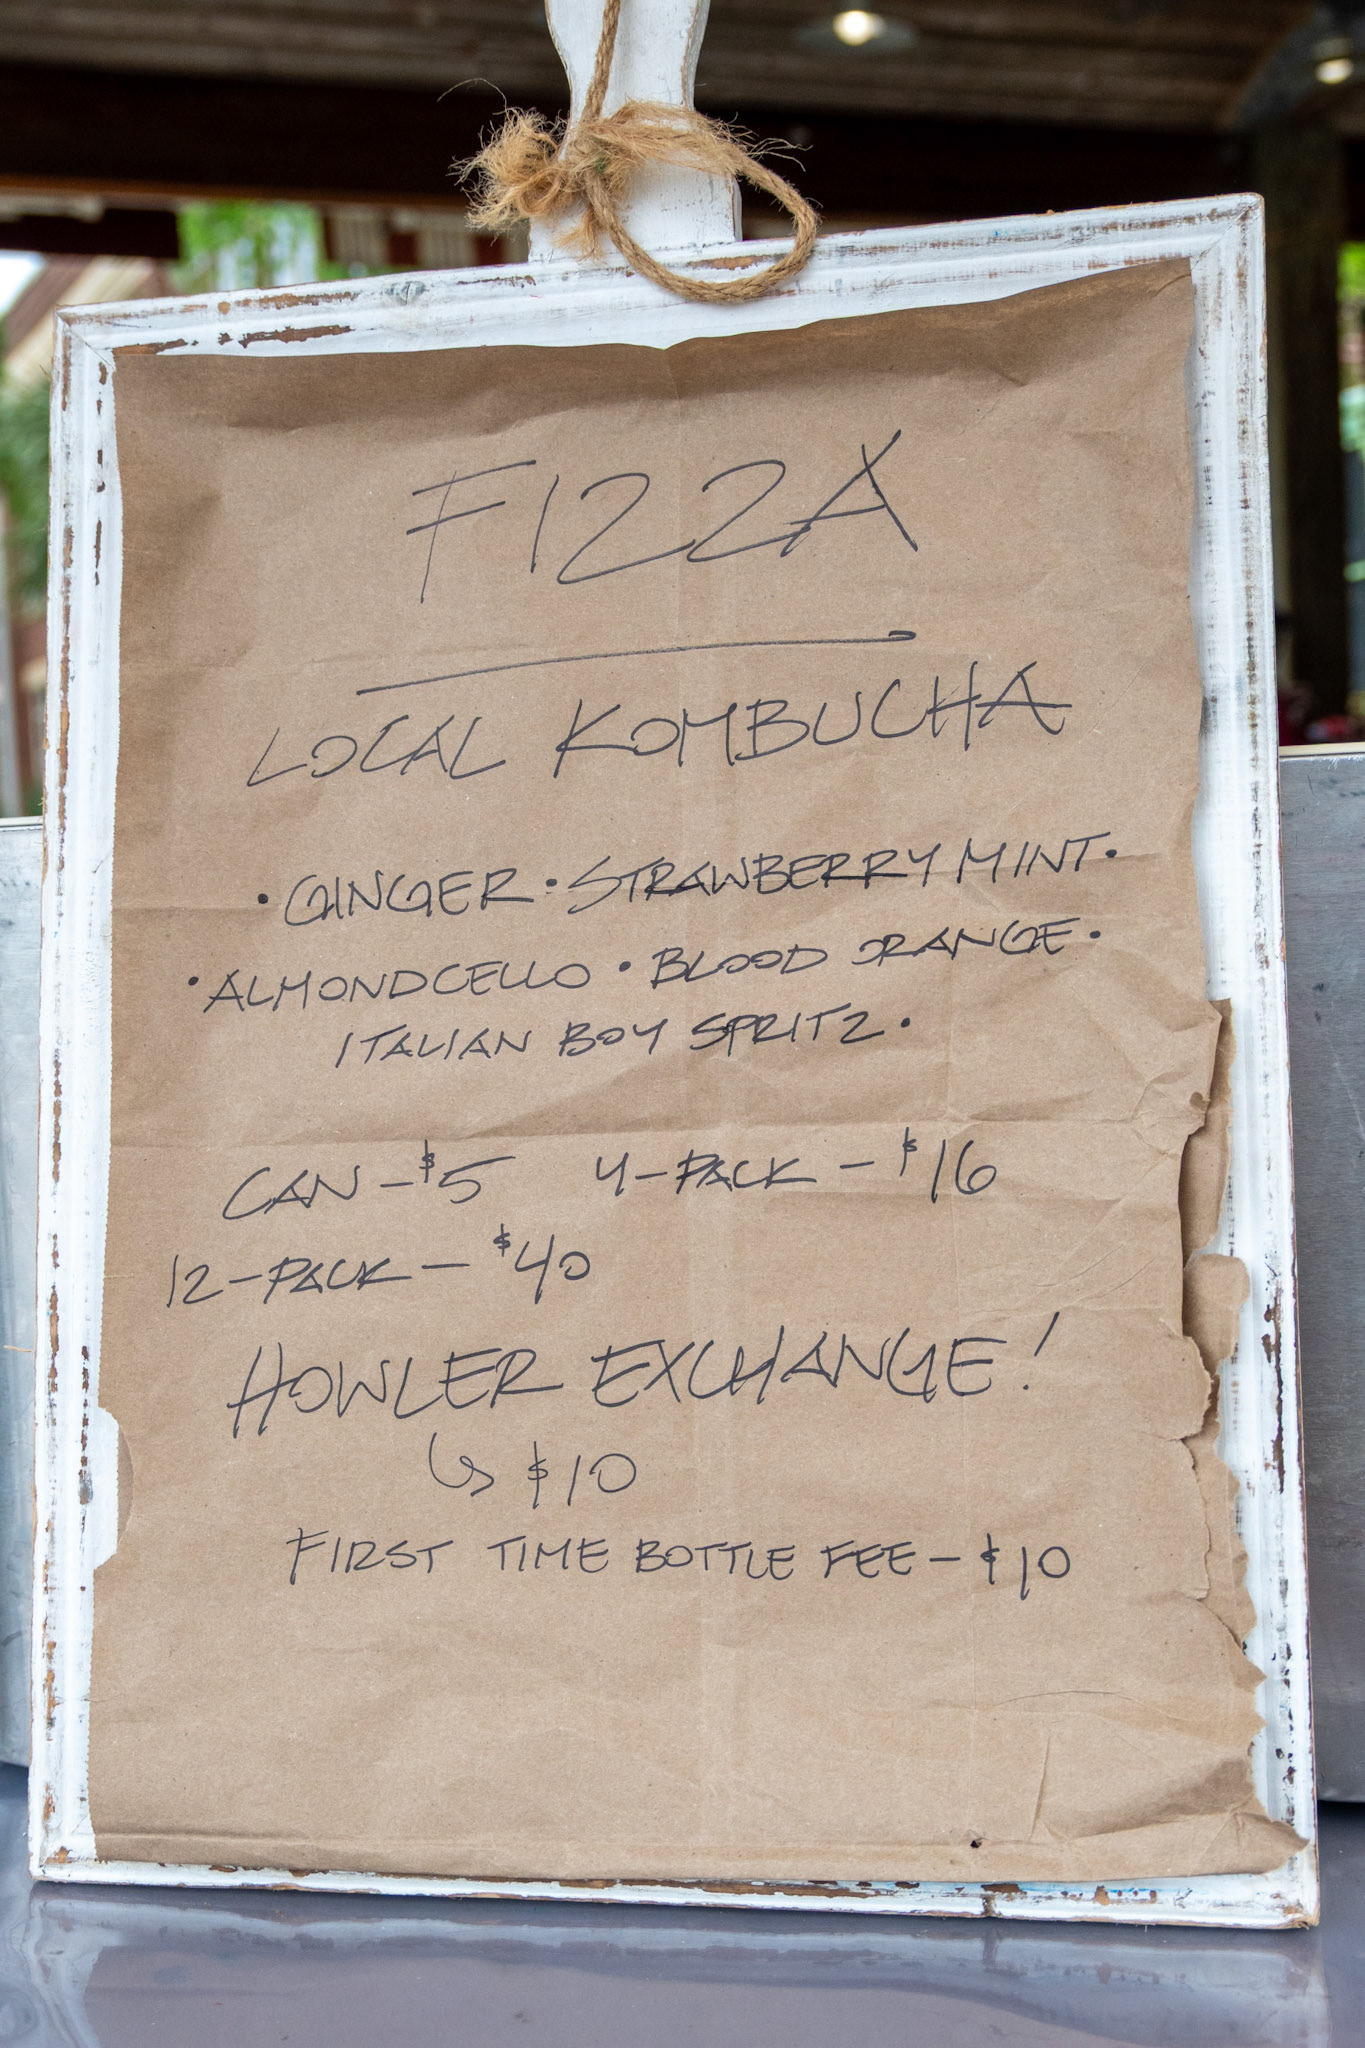 FIZZA
LOCAL KOMBUCHA
• GINGER • STRAWBERRY MINT •
• ALMONDCELLO • BLOOD ORANGE •
ITALIAN BOY SPRITZ •
CAN - $5 4-PACK - $16
12-PACK - $40
HOWLER EXCHANGE!
↳ $10
FIRST TIME BOTTLE FEE - $10